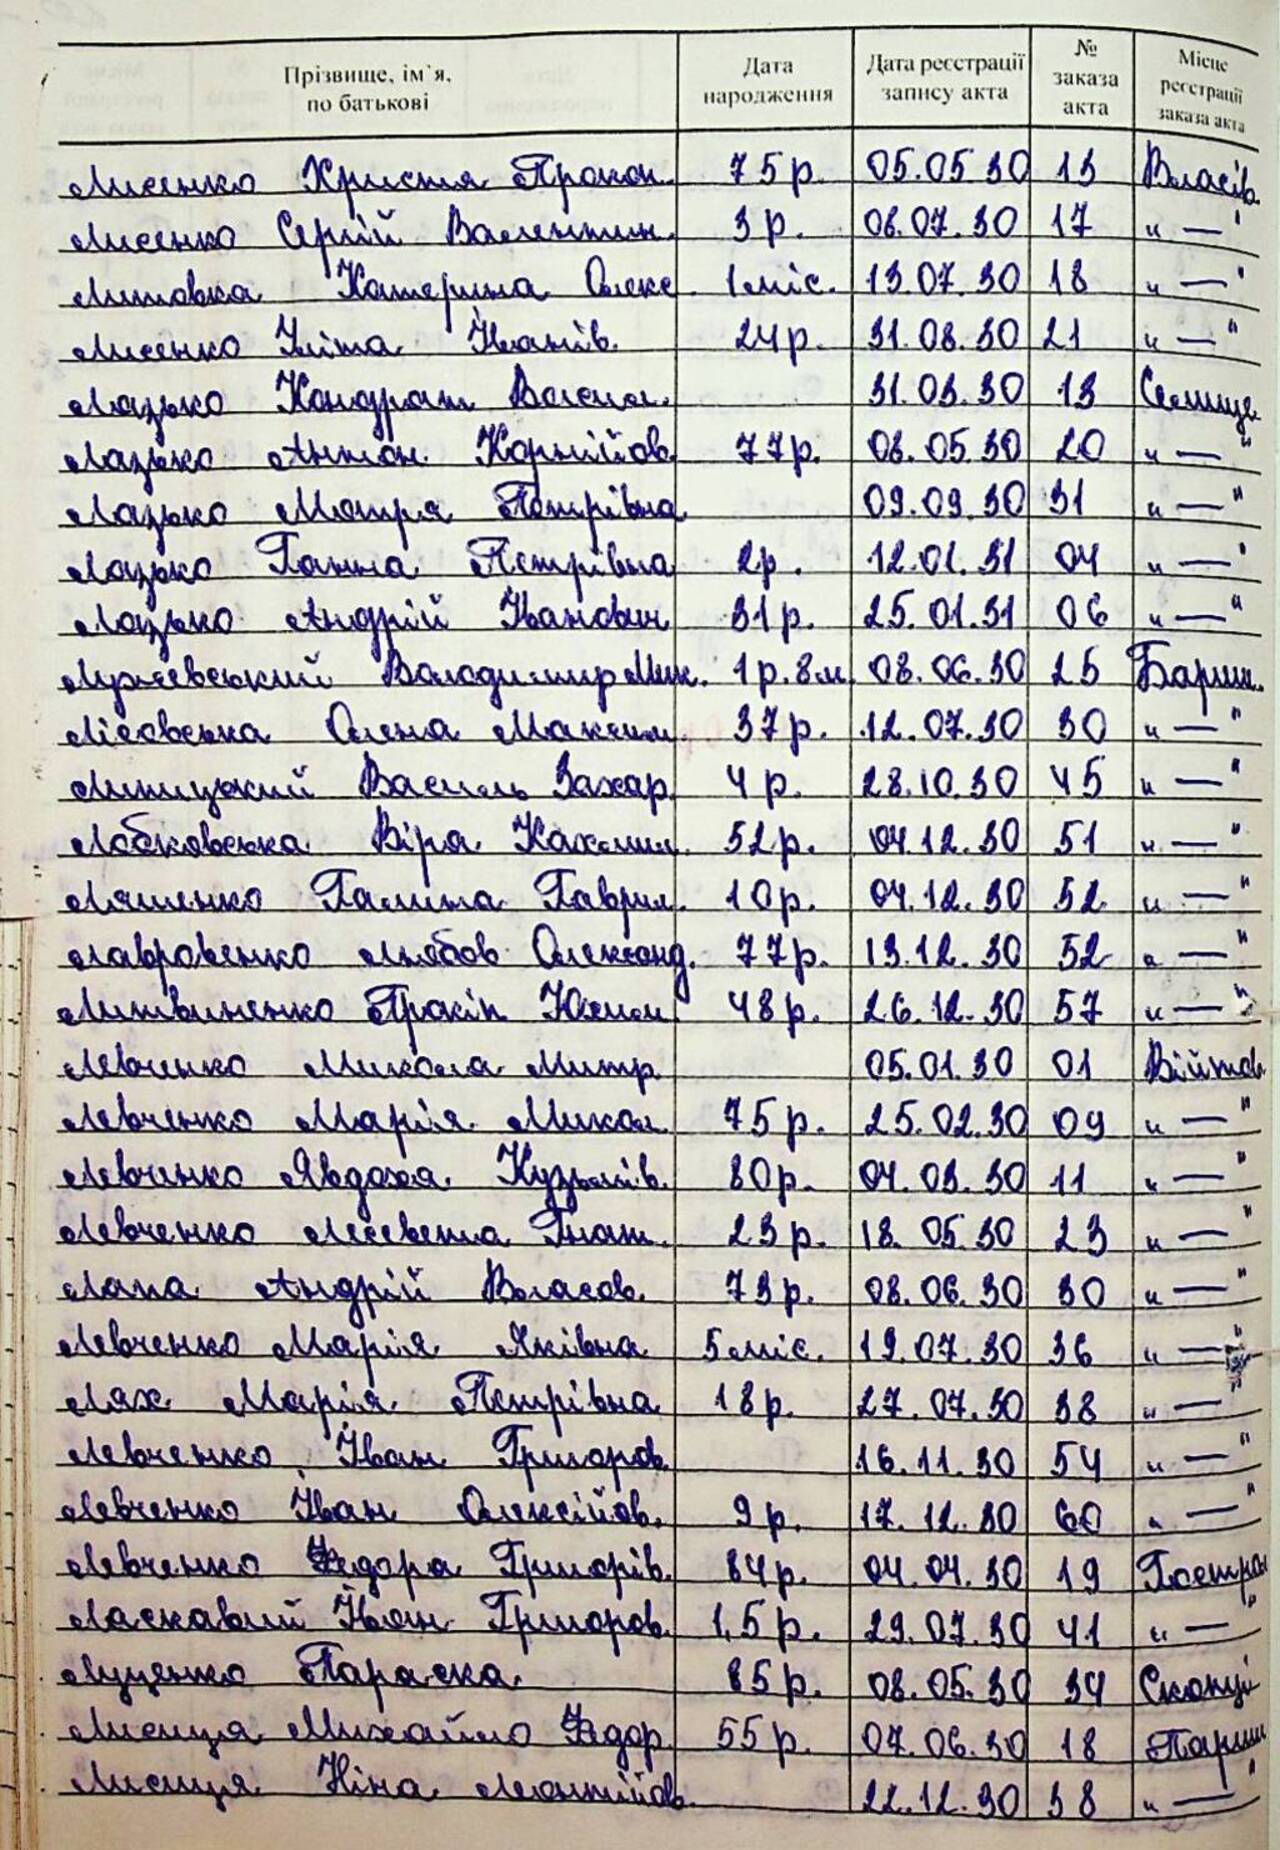 Прізвище, ім`я, по батькові Дата народження Дата реєстрації запису акта № заказа акта Місце реєстрації заказа акта
Лисенко Христя Прокоп. 75 р. 05.05.30 13 Власів.
Лисенко Сергій Валентин. 3 р. 08.07.30 17 "—"
Литовка Катерина Олекс. 1 міс. 13.07.30 18 "—"
Лисенко Уліта Іванів. 24 р. 31.08.30 21 "—"
Лазько Кондрат Васил. 31.03.30 13 Селище
Лазько Антон Корнійов. 77 р. 08.05.30 20 "—"
Лазько Мотря Петрівна 09.09.30 31 "—"
Лазько Ганна Петрівна 2 р. 12.01.31 04 "—"
Лазько Андрій Іванович 31 р. 25.01.31 06 "—"
Володимир Мик. 1 р. 8 м. 08.06.30 25 Бариш.
Лісовська Олена Максим. 37 р. 12.07.30 30 "—"
Липицький Василь Захар. 4 р. 28.10.30 45 "—"
Лобковська Віра 52 р. 04.12.30 51 "—"
Ляшенко Галина Гаврил. 10 р. 04.12.30 52 "—"
Лавровенко Любов Олександ. 77 р. 13.12.30 52 "—"
Литвиненко Прокіп 48 р. 26.12.30 57 "—"
Левченко Микола Митр. 05.01.30 01 Війтов.
Левченко Марія Микол. 75 р. 25.02.30 09 "—"
Левченко Явдоха Кузьмів. 80 р. 04.03.30 11 "—"
Левченко Лесевета Гнат. 23 р. 18.05.30 23 "—"
Лапа Андрій Власов. 73 р. 08.06.30 30 "—"
Левченко Марія Яківна 5 міс. 19.07.30 36 "—"
Лях Марія Петрівна 18 р. 27.07.30 38 "—"
Левченко Іван Григоров. 16.11.30 54 "—"
Левченко Іван Олексійов. 9 р. 17.12.30 60 "—"
Левченко Федора Григорів. 84 р. 04.04.30 19 Гостро
Ласкавий Іван Григоров. 1,5 р. 29.07.30 41 "—"
Луценко Параска 85 р. 08.05.30 34 Скопці
Лисиця Михайло Федор. 55 р. 07.06.30 18 Париш
Лисиця Ніна Леонтійов. 22.12.30 38 "—"